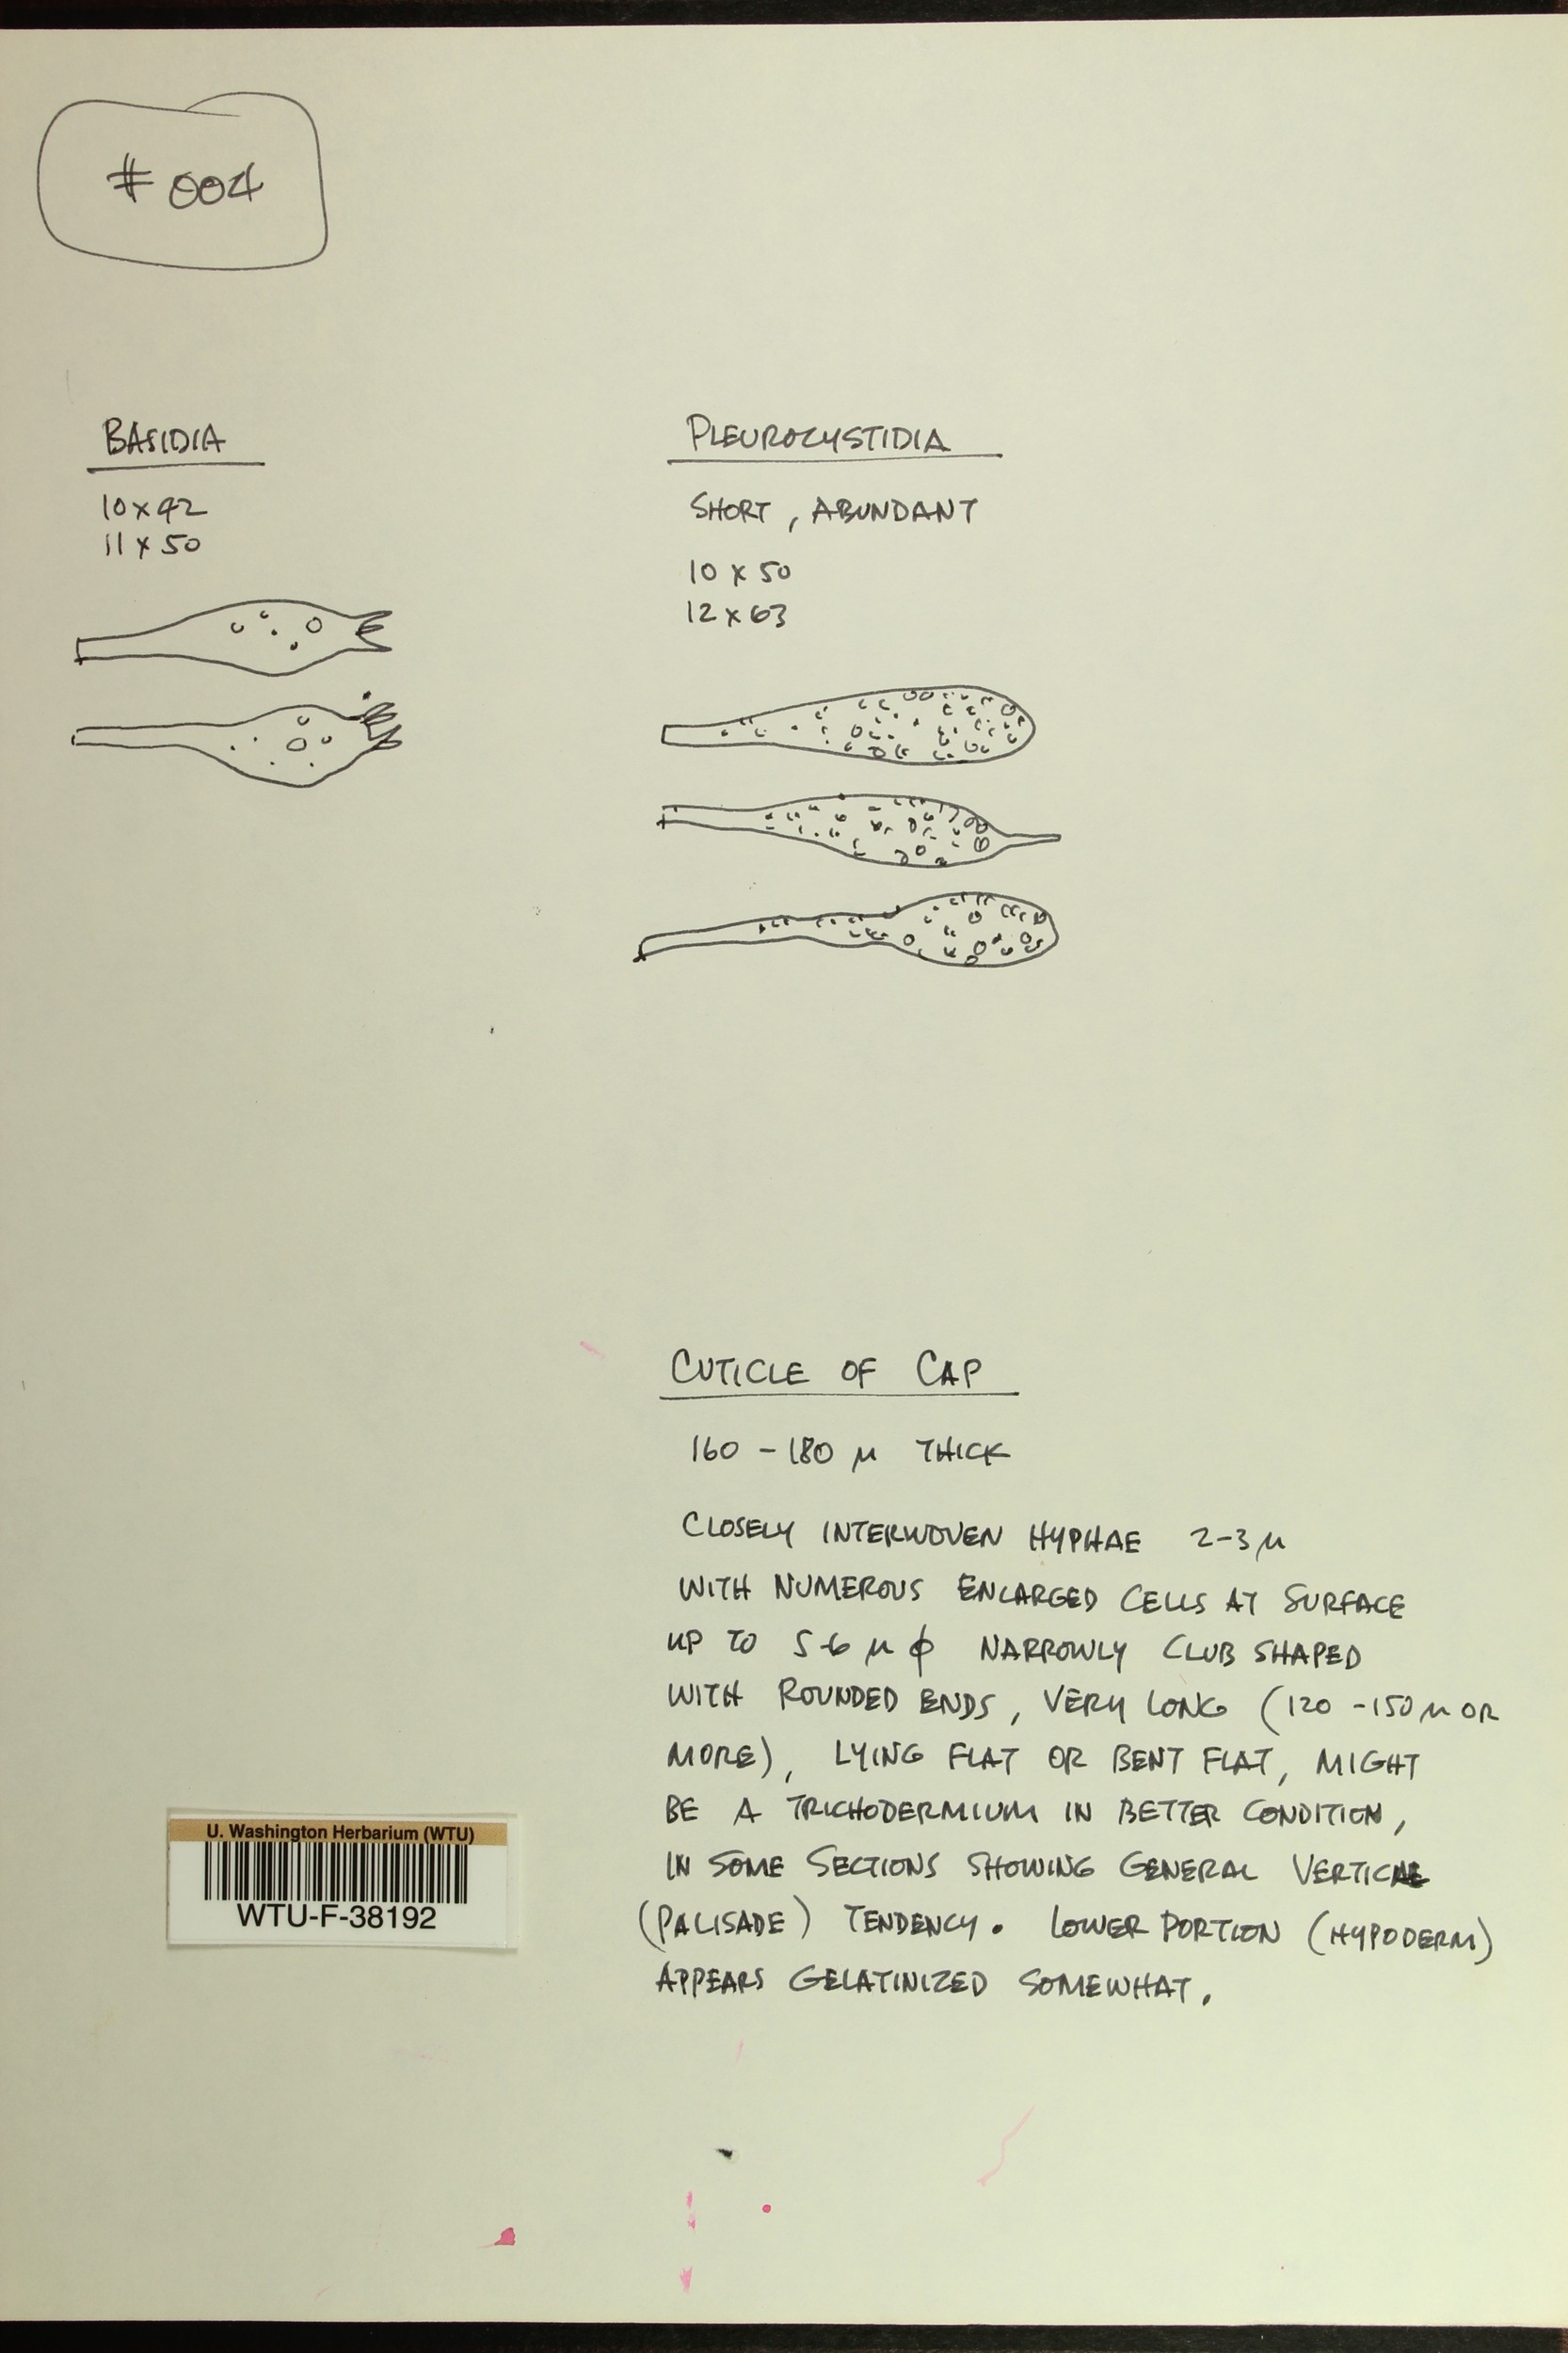 # 004
BASIDIA
10 x 42
11 x 50
PLEUROCYSTIDIA
SHORT, ABUNDANT
10 x 50
12 x 63
CUTICLE OF CAP
160 - 180 µ THICK
CLOSELY INTERWOVEN HYPHAE 2-3 µ
WITH NUMEROUS ENLARGED CELLS AT SURFACE
UP TO 5-6 µ ϕ NARROWLY CLUB SHAPED
WITH ROUNDED ENDS, VERY LONG (120 - 150 µ OR
MORE), LYING FLAT OR BENT FLAT, MIGHT
BE A TRICHODERMIUM IN BETTER CONDITION,
IN SOME SECTIONS SHOWING GENERAL VERTICAL
(PALISADE) TENDENCY. LOWER PORTION (HYPODERM)
APPEARS GELATINIZED SOMEWHAT.
U. Washington Herbarium (WTU)
WTU-F-38192